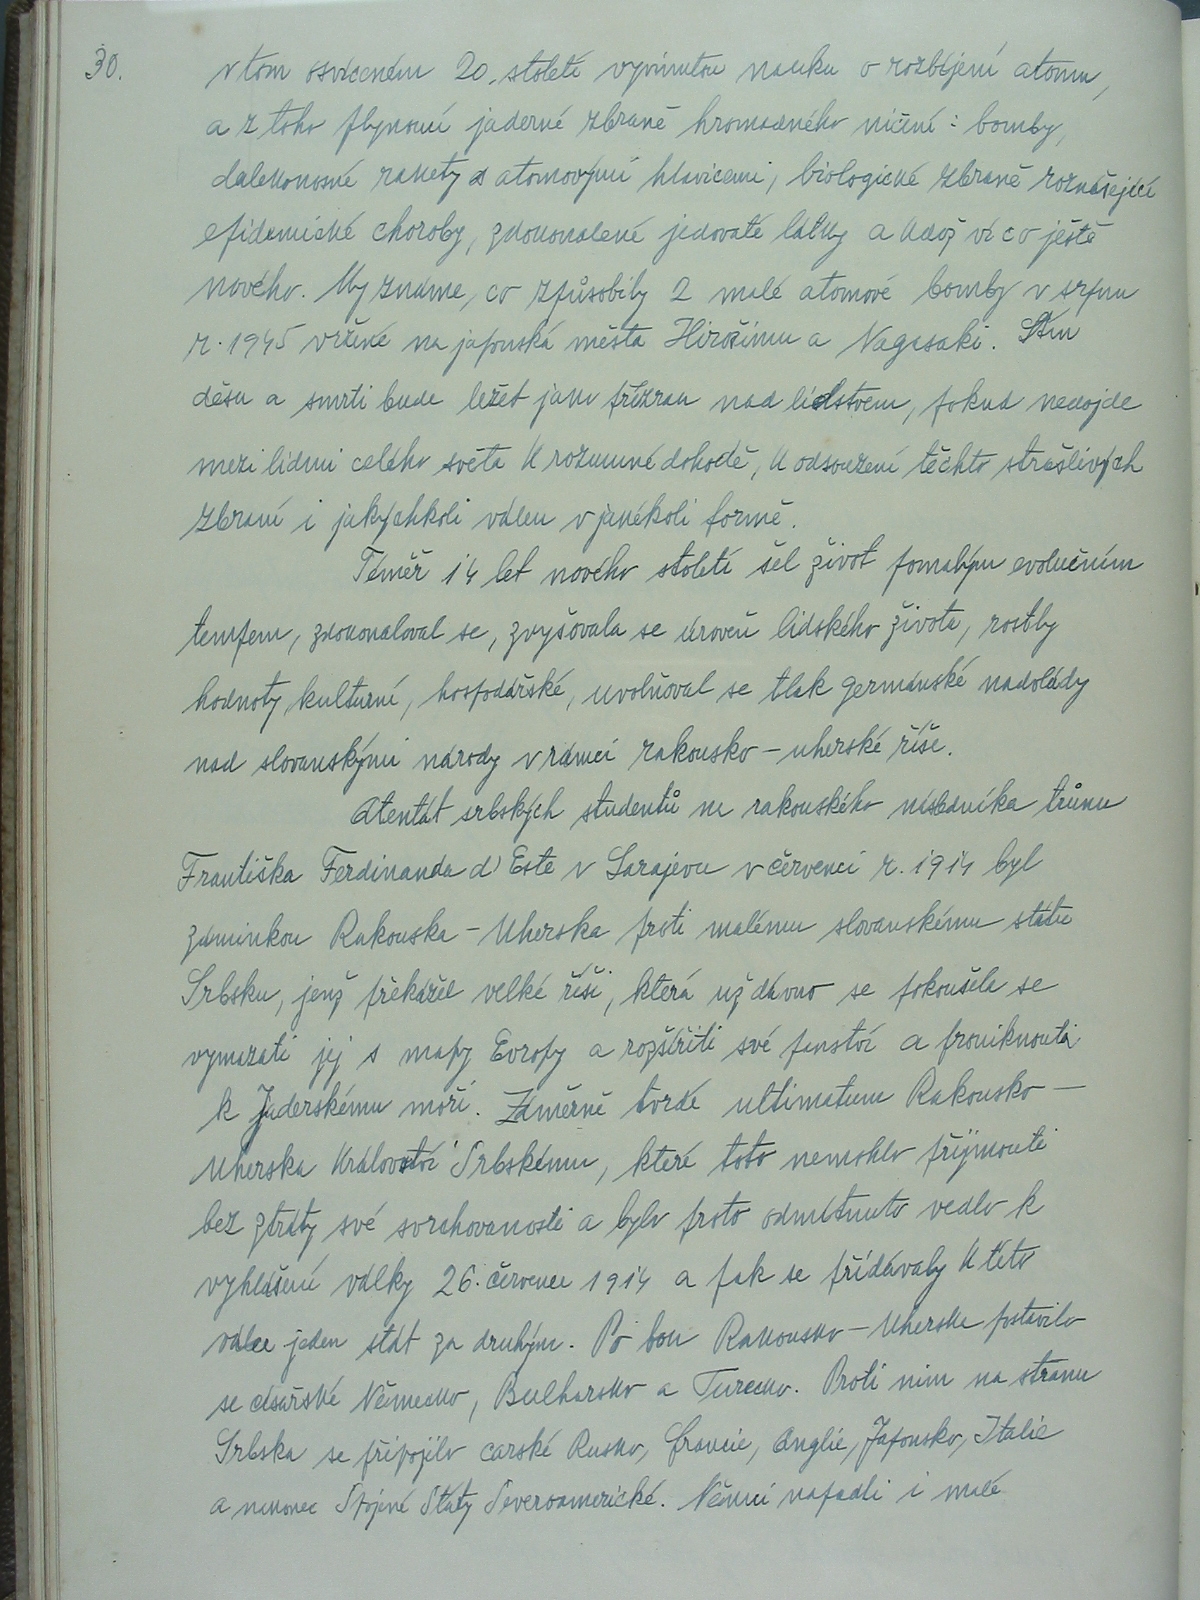 30.
v tom osvíceném 20. století vyvinutou nauku o rozbíjení atomu,
a z toho plynoucí jaderné zbraně hromadného ničení: bomby,
dalekonosné rakety s atomovými hlavicemi, biologické zbraně roznášející
epidemické choroby, zdokonalené jedovaté látky a kdož ví co ještě
nového. My známe, co způsobily 2 malé atomové bomby v srpnu
r. 1945 vržené na japonská města Hirošimu a Nagasaki. Stín
děsu a smrti bude ležet jako přízrak nad lidstvem, pokud nedojde
mezi lidmi celého světa k rozumné dohodě, k odsouzení těchto strašlivých
zbraní i jakýchkoli válek v jakékoli formě.
Téměř 14 let nového století šel život pomalým evolučním
tempem, zdokonaloval se, zvyšovala se úroveň lidského života, rostly
hodnoty kulturní, hospodářské, uvolňoval se tlak germánské nadvlády
nad slovanskými národy v rámci rakousko-uherské říše.
Atentát srbských studentů na rakouského následníka trůnu
Františka Ferdinanda d'Este v Sarajevu v červenci r. 1914 byl
záminkou Rakouska-Uherska proti malému slovanskému státu
Srbsku, jenž překážel velké říši, která už dávno se pokoušela se
vymazati jej s mapy Evropy a rozšířiti své panství a proniknouti
k Jaderskému moři. Záměrně tvrdé ultimatum Rakousko-
Uherska Království Srbskému, které toto nemohlo přijmouti
bez ztráty své svrchovanosti a bylo proto odmítnuto vedlo k
vyhlášení války 26. července 1914 a pak se přidávaly k této
válce jeden stát za druhým. Po boku Rakousko-Uherska postavilo
se císařské Německo, Bulharsko a Turecko. Proti nim na stranu
Srbska se připojilo carské Rusko, Francie, Anglie, Japonsko, Italie
a nakonec Spojené Státy Severoamerické. Němci napadli i malé